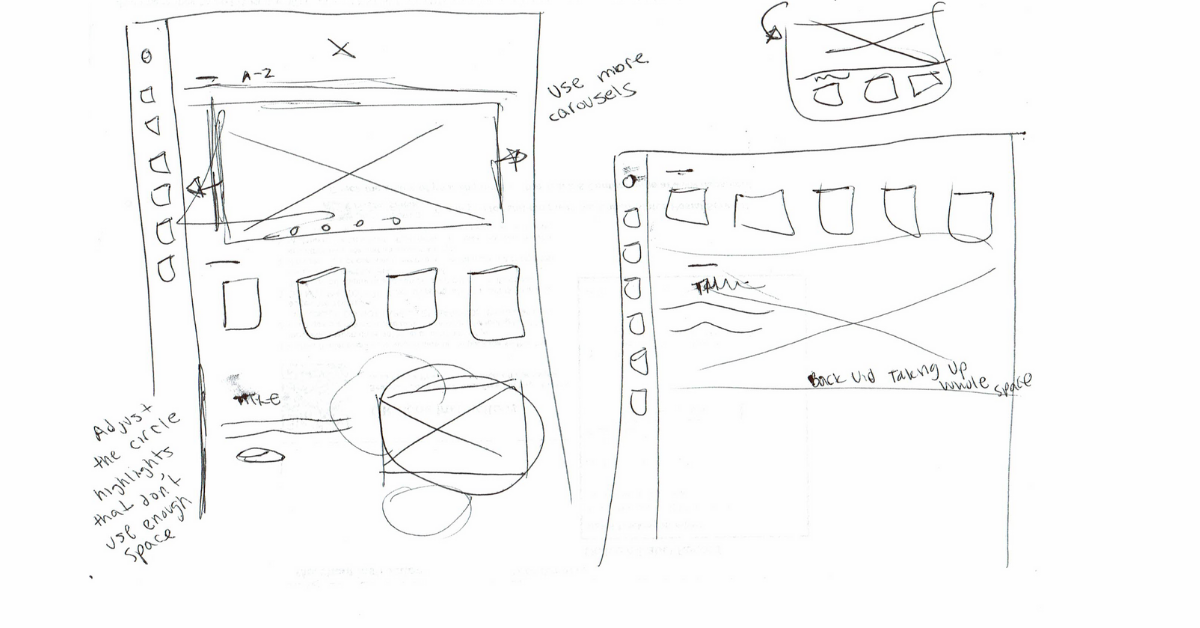 A-Z
use more
carousels
Adjust
the circle
highlights
that don't
use enough
space
Back vid Taking up
whole space